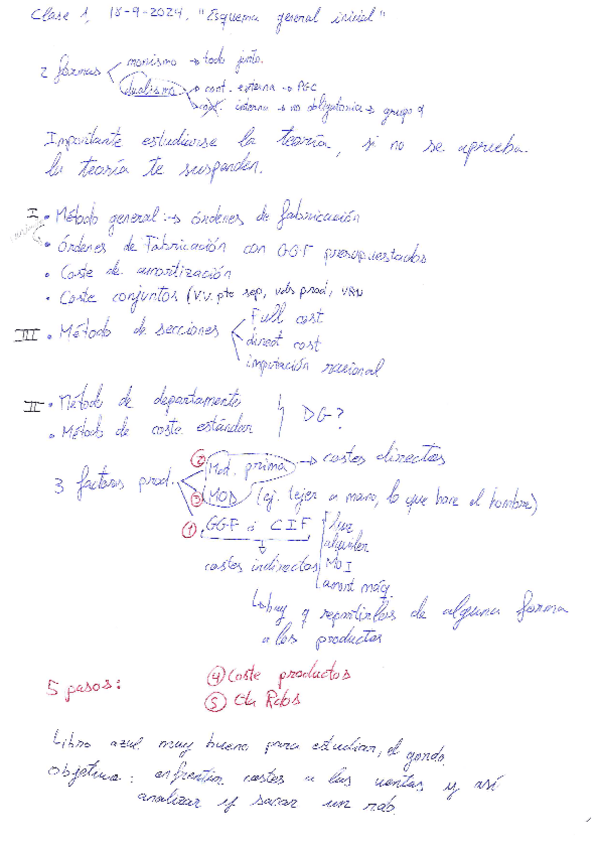 Clase 1, 18-9-2024. "Esquema general inicial"
2 formas
monismo → todo junto.
dualismo → cont. externa → PGC
cont. interna → no obligatoria → grupo 9
Importante estudiarse la teoría, si no se aprueba
la teoría te suspenden.
I • Método general: → órdenes de fabricación
• Órdenes de Fabricación con GGF presupuestados
• Coste de amortización
• Coste conjuntos (V.V. pto sep, uds prod, VRN
III • Método de secciones
Full cost
direct cost
imputación racional
II • Método de departamento
• Método de coste estándar
DG?
3 factores prod.
② Mat. prima → costes directos
③ MOD (ej. tejer a mano, lo que hace el hombre)
① GGF ó CIF
luz
alquiler
MOI
amort máq.
costes indirectos
hay q repartirlos de alguna forma
a los productos
5 pasos:
④ Coste productos
⑤ Cta Rdos
Libro azul muy bueno para estudiar, el gordo.
Objetivo: enfrentar costes a las ventas y así
analizar y sacar un rdo.